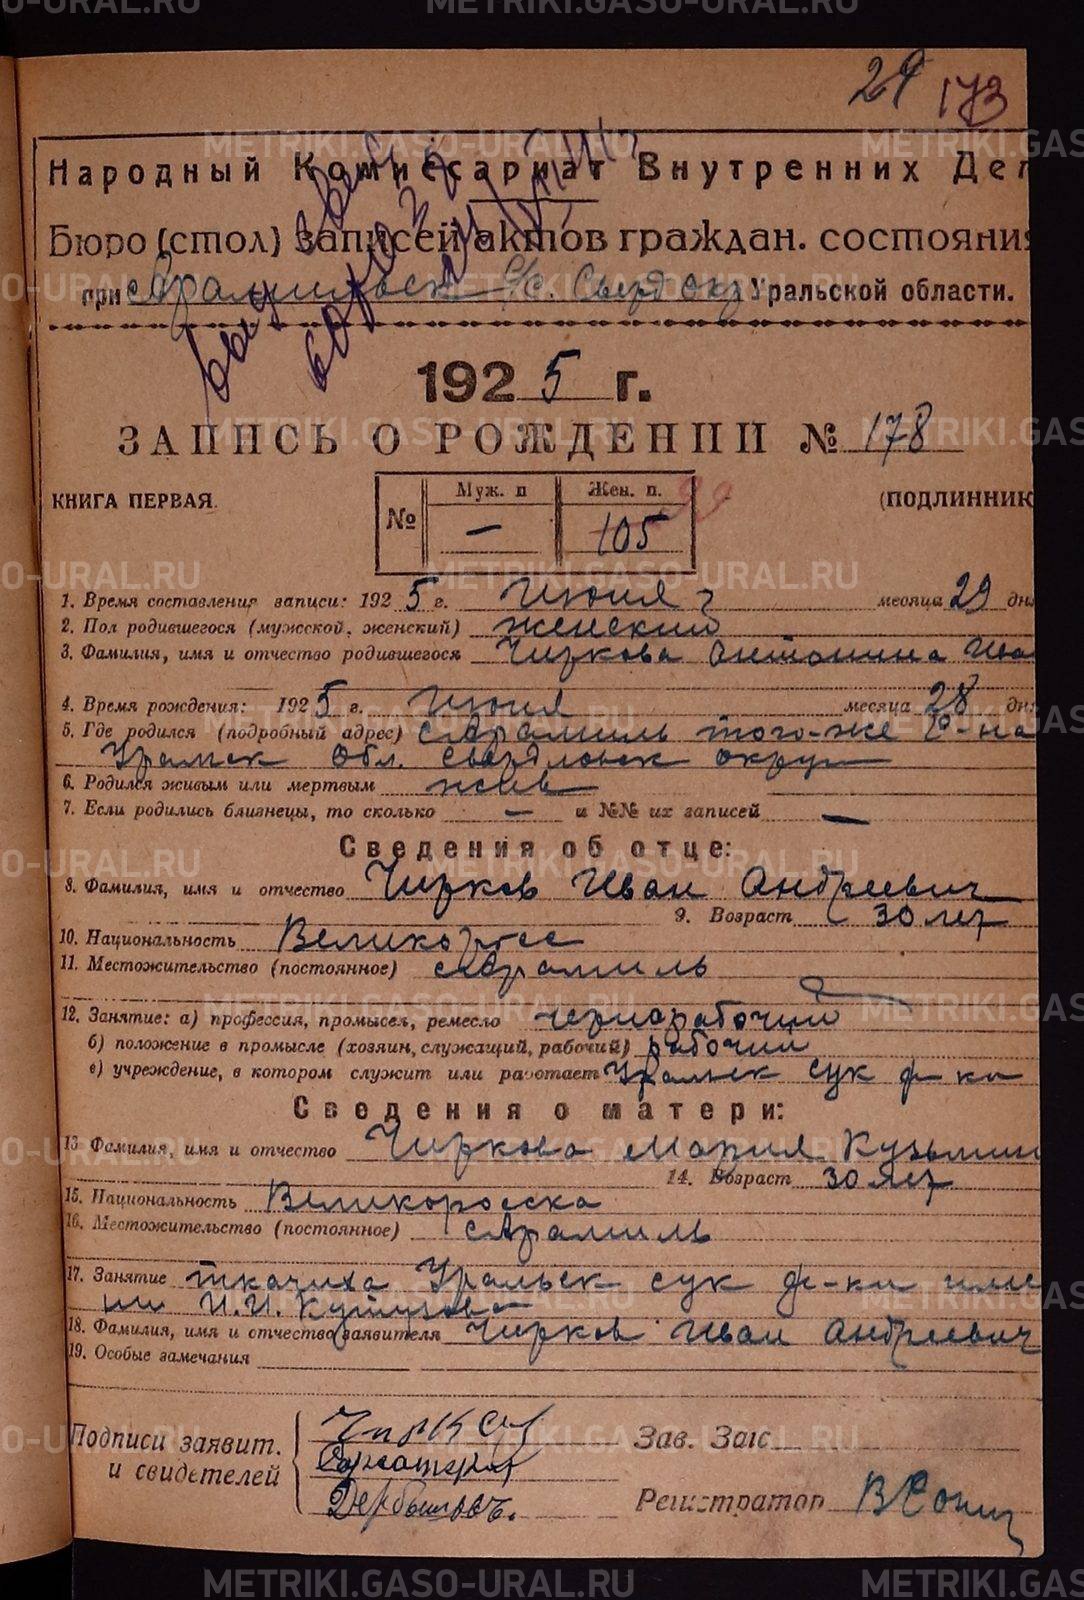 29 173
Народный Комиссариат Внутренних Дел
Бюро (стол) записей актов граждан. состояния
при Арамильск с/с. Свердокр Уральской области.
1925 г.
ЗАПИСЬ О РОЖДЕНИИ № 178
КНИГА ПЕРВАЯ. (ПОДЛИННИК
№ Муж. п Жен. п. 99
— 105
1. Время составления записи: 1925 г. Июня месяца 29 дня
2. Пол родившегося (мужской, женский) женский
3. Фамилия, имя и отчество родившегося Чиркова Антонина Ива
4. Время рождения: 1925 г. Июня месяца 28 дня
5. Где родился (подробный адрес) с Арамиль того-же Р-на
Уралск Обл. Свердловск округ
6. Родился живым или мертвым жив
7. Если родились близнецы, то сколько — и №№ их записей —
Сведения об отце:
8. Фамилия, имя и отчество Чирков Иван Андреевич
9. Возраст 30 лет
10. Национальность Великоросс
11. Местожительство (постоянное) с Арамиль
12. Занятие: а) профессия, промысел, ремесло чернорабочий
б) положение в промысле (хозяин, служащий, рабочий) рабочий
в) учреждение, в котором служит или работает Уральск сук ф-ка
Сведения о матери:
13 Фамилия, имя и отчество Чиркова Мария Кузьмин
14. Возраст 30 лет
15. Национальность Великоросска
16. Местожительство (постоянное) с Арамиль
17. Занятие ткачиха Уральск сук ф-ки име
ни И.И. Кутузова
18. Фамилия, имя и отчество заявителя Чирков Иван Андреевич
19. Особые замечания
Подписи заявит. Чирков Зав. Загс
и свидетелей
Дербышевъ. Регистратор
METRIKI.GASO-URAL.RU